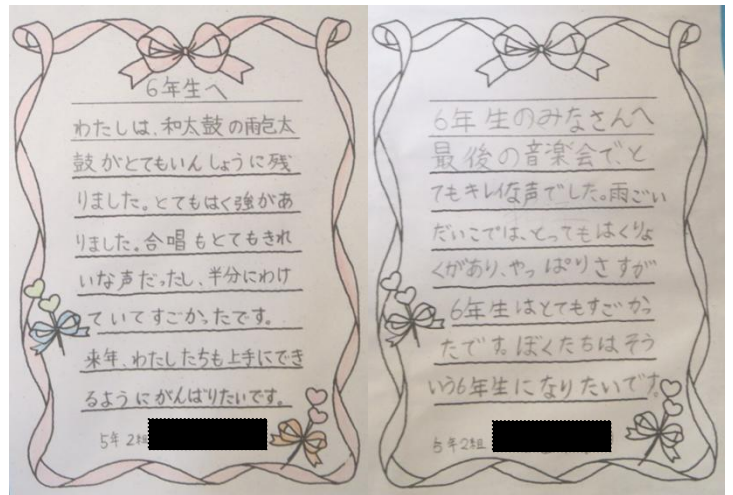 6年生へ
わたしは、和太鼓の雨包太
鼓がとてもいんしょうに残
りました。とてもはく強があ
りました。合唱もとてもきれ
いな声だったし、半分にわけ
ていてすごかったです。
来年、わたしたちも上手にでき
るようにがんばりたいです。
5年2組
6年生のみなさんへ
最後の音楽会で、と
てもキレイな声でした。雨ごい
だいこでは、とってもはくりょ
くがあり、やっぱりさすが
6年生はとてもすごかっ
たです。ぼくたちはそう
いう6年生になりたいです。
5年2組